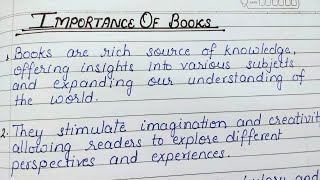 IMPORTANCE OF BOOKS
1. Books are rich source of knowledge,
offering insights into various subjects
and expanding our understanding of
the world.
2. They stimulate imagination and creativit
allowing readers to explore different
pesspectives and experiences.
and